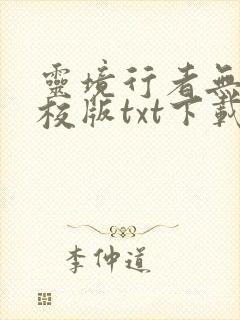 靈境行者無
校版txt下載
李仲道